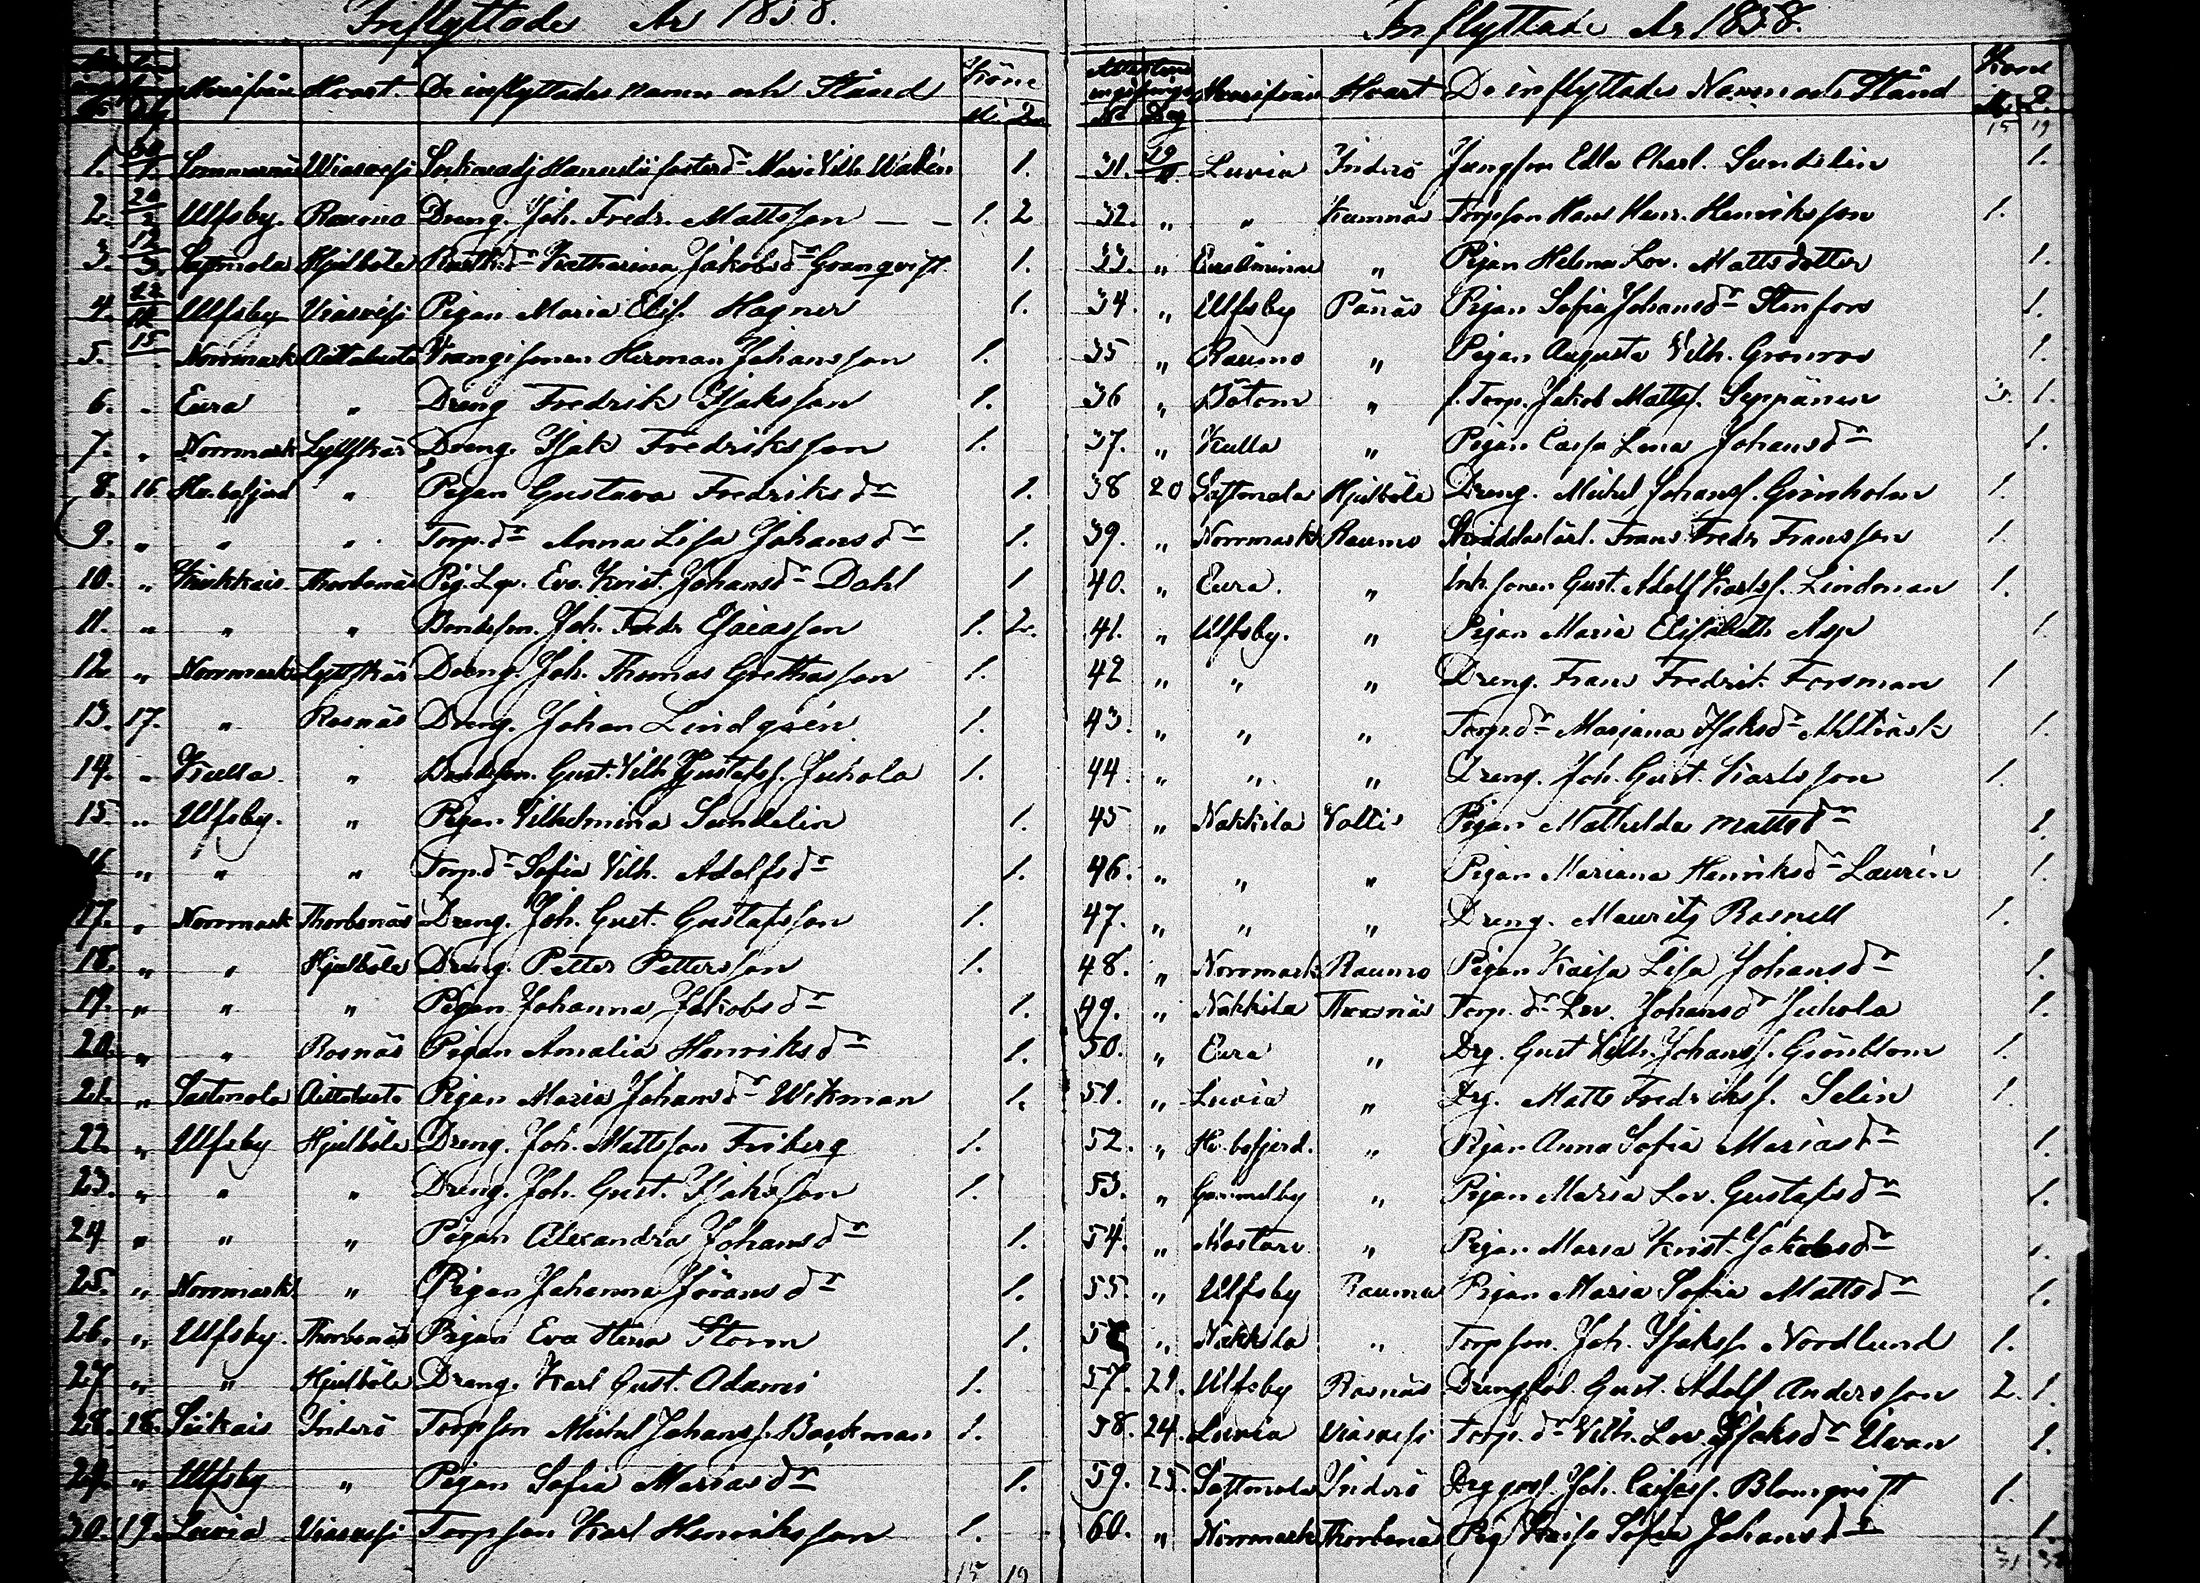 Inflyttade År 1858.
Hvarifrån Hvart. De inflyttades namn och Stånd Köne
M. Q.
1. Viasvesi 1.
2. Ulfsby. Raumo Dreng. Joh. Fredr. Mattsson 1. 2
3. Sastmola Hjulböle Katharina Jakobsdr Granqvist 1.
4. Ulfsby Viasvesi Pigan Maria Elis. Hagner 1.
5. 15 Norrmark Aittaluoto Herman Johansson 1.
6. " Eura " Dreng Fredrik Isaksson 1.
7. " Norrmark Lyttskär Dreng. Isak Fredriksson 1.
8. 16 Pigan Gustava Fredriksdr 1.
9. " " " Torp.dr Anna Lisa Johansdr 1.
10. " Thorbenäs Pig. Lov. Eva Krist. Johansdr Dahl 1
11. " " " Bondeson. Joh. Fredr Esaiasson 1. 2.
12 " Norrmark Lyttskär Dreng. Joh. Thomas Grethasson 1.
13. 17. " Rosnäs Dreng. Johan Lindgrén 1.
14. " Kulla " Bondeson. Gust. Vilh. Gustafss. Juhola 1.
15. " Ulfsby. " Pigan Vilhelmina Sundelin 1.
16. " " " Torp.dr Sofia Vilh. Adolfsdr 1.
17. " Norrmark Thorbenäs Dreng. Joh. Gust. Gustafsson 1.
18. " " Hjulböle Dreng. Petter Pettersson 1.
19. " " " Pigan Johanna Jakobsdr 1.
20. " " Rosnäs Pigan Amalia Henriksdr 1.
21. " Sastmola Aittaluoto Pigan Maria Johansdr Wikman 1.
22. " Ulfsby Hjulböle Dreng. Joh. Mattsson Friberg 1.
23. " " " Dreng. Joh. Gust. Isaksson 1.
24 " " " Pigan Alexandra Johansdr 1.
25. " Norrmark " Pigan Johanna Jöransdr 1.
26. " Ulfsby. Thorbenäs Pigan Eva Storm 1.
27 " " Hjulböle Dreng. Karl Gust. Adamss 1.
28. 18. Siikais Inderö Torpson Michel Johanss. Backman 1.
29. " Ulfsby " Pigan Sofia Mariasdr 1.
30. 19. Luvia Viasvesi Torpson Karl Henriksson 1.
15 19
Inflyttade År 1858.
Hvarifrån Hvart De inflyttades Namn och Stånd Köne
No Dag M. Q.
15 19
31. 19 Luvia Inderö Jungfru Edla Charl. Sundelin 1.
32. " " Kumnäs Torpson Hans Henr. Henriksson 1.
33. " Euraåminne " Pigan Helena Lov. Mattsdotter 1.
34. " Ulfsby Pänäs Pigan Sofia Johansdr Stenfors 1.
35 " Raumo " Pigan Augusta Vilh. Grönroos 1.
36 " Bötom " f. Torp. Jakob Matts. Seppänen 3. 1.
37. " Kulla " Pigan Caisa Lena Johansdr 1.
38 20 Sastmola Hjulböle Dreng. Michel Johanss. Grönholm 1.
39. " Norrmark Raumo Skräddarlärl. Frans Fredr Fransson 1.
40. " Eura. " Inh. sonen Gust. Adolf Karlss. Lindman 1.
41. " Ulfsby. " Pigan Maria Elisabeth Asp 1.
42 " " " Dreng. Frans Fredrik Forsman 1
43. " " " Torp.dr Marjana Isaksdr Ahlträsk 1.
44. " " " Dreng. Joh. Gust. Karlsson 1.
45 " Nakkila Voltis Pigan Mathilda Mattsdr 1.
46. " " " Pigan Mariana Henriksdr Laurén 1.
47. " " " Dreng. Mauritz Rosnell 1.
48. " Norrmark Raumo Pigan Kaisa Lisa Johansdr 1.
49. " Nakkila Torp. dr Lov. Johansdr Juhola 1.
50. " Eura " Drg. Gust Vilh. Johanss. Grönblom 1.
51. " Luvia " Drg. Matts Fredrikss. Selin 1.
52. " " Pigan Anna Sofia Mariasdr 1.
53. " Gammelby " Pigan Maria Lov. Gustafsdr 1.
54. " " Pigan Maria Krist. Jakobsdr 1.
55. " Ulfsby Raumo Pigan Maria Sofia Mattsdr 1.
56 " Nakkila " Torpson. Joh. Isakss. Nordlund 1.
57. 21. Ulfsby Rosnäs Gust. Adolf Andersson 2. 1.
58. 24. Luvia Viasvesi Torp. dr Vilh. Lov. Isaksdr Uvan 1.
59. 25. Sastmola Inderö Joh. Blomqvist 1.
60. " Norrmark Thorbenäs Pig Kaisa Sofia Johansdr 1.
31